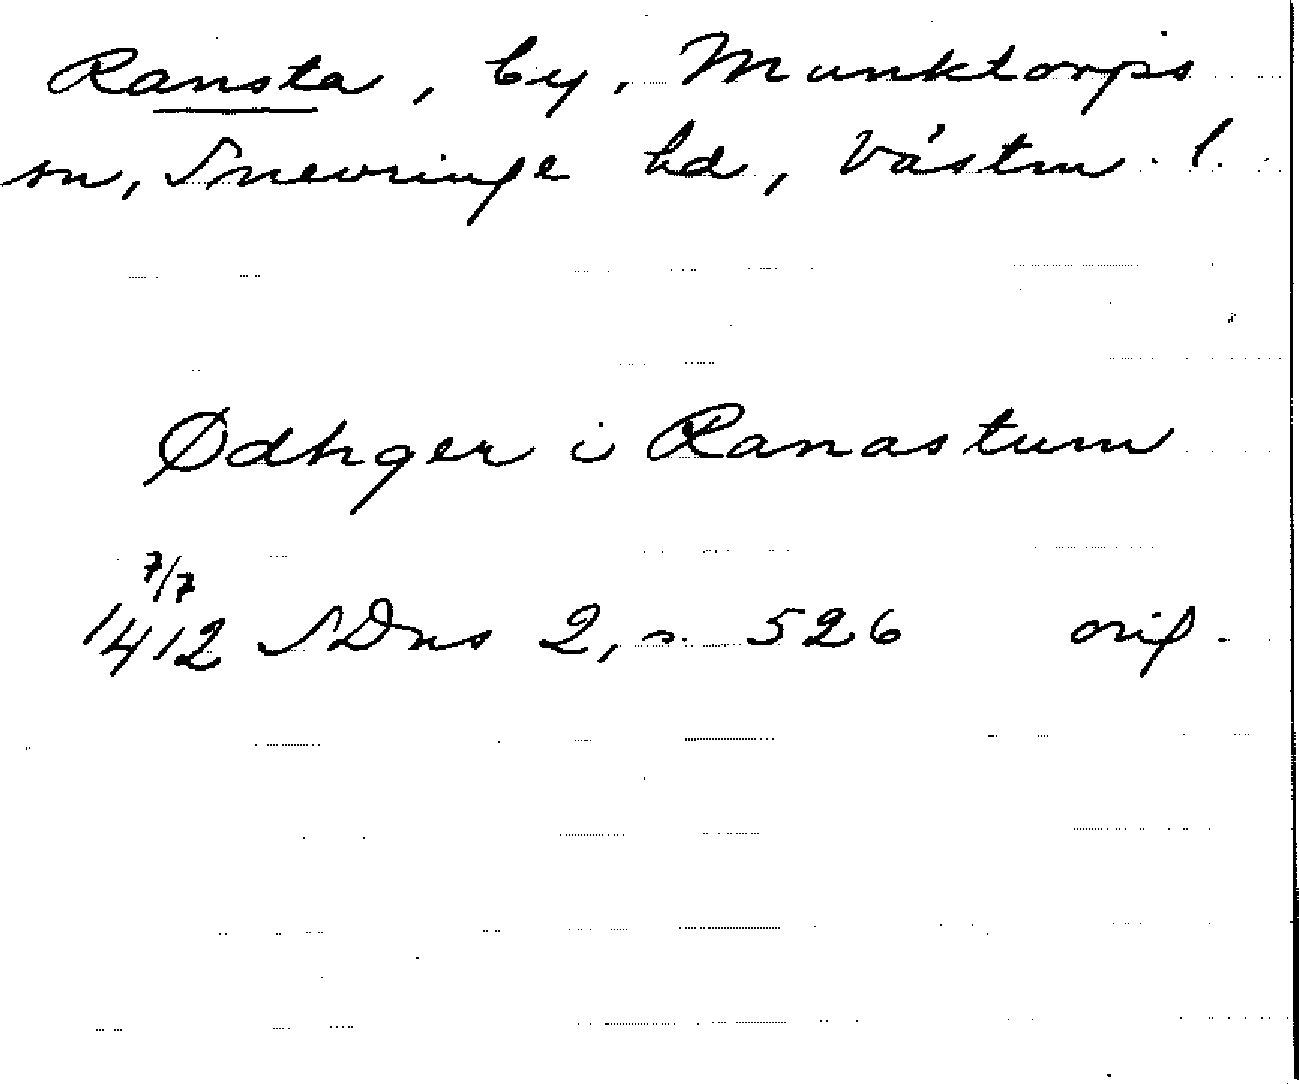 Ransta, by, Munktorps
sn, Snevringe hd, Västm. l.
Ødhger i Ranastum
7/7
1412 SDns 2, s. 526 orig.